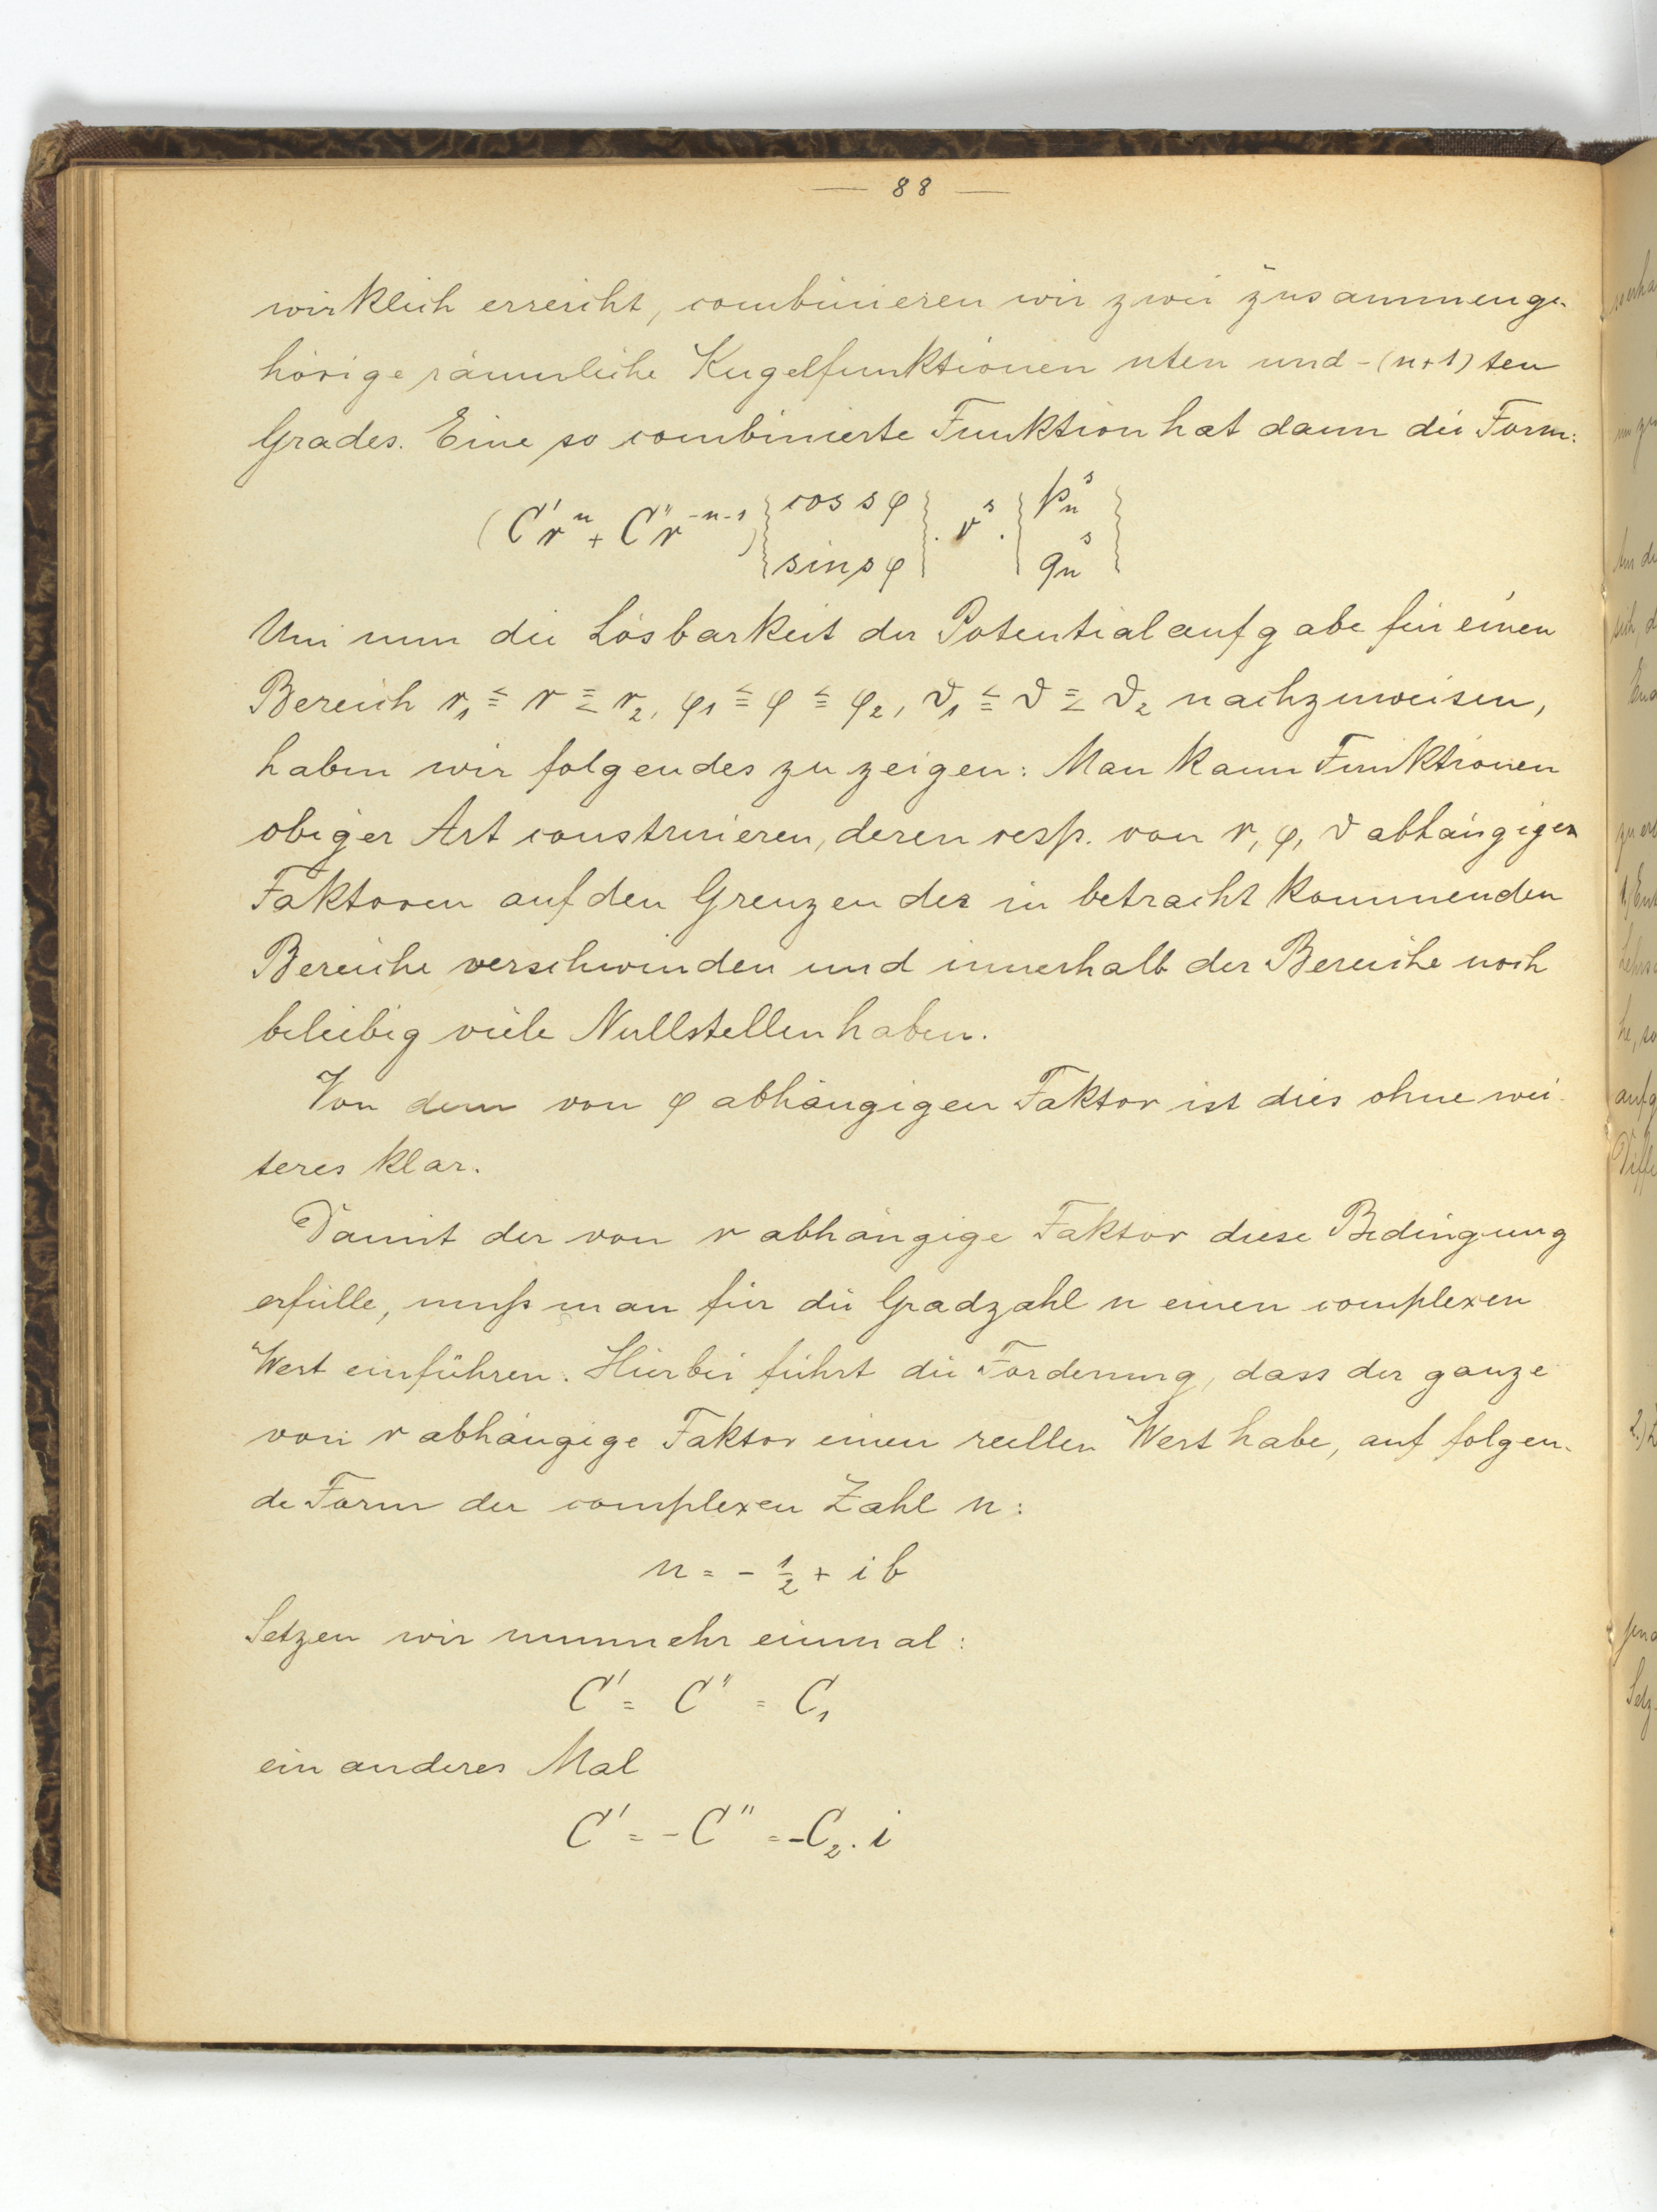 — 88 —
wirklich erreicht, combinieren wir zwei zusammenge-
hörige räumliche Kugelfunktionen nten und -(n+1)ten
Grades. Eine so combinierte Funktion hat dann die Form:
(C' rⁿ + C'' r⁻ⁿ⁻¹) { cos sφ / sin sφ } · νˢ · { pₙˢ / qₙˢ }
Um nun die Lösbarkeit der Potentialaufgabe für einen
Bereich r₁ ≦ r ≦ r₂, φ₁ ≦ φ ≦ φ₂, ϑ₁ ≦ ϑ ≦ ϑ₂ nachzuweisen,
haben wir folgendes zu zeigen: Man kann Funktionen
obiger Art construieren, deren resp. von r, φ, ϑ abhängigen
Faktoren auf den Grenzen der in betracht kommenden
Bereiche verschwinden und innerhalb der Bereiche noch
beliebig viele Nullstellen haben.
Von dem von φ abhängigen Faktor ist dies ohne wei-
teres klar.
Damit der von r abhängige Faktor diese Bedingung
erfülle, muß man für die Gradzahl n einen complexen
Wert einführen. Hierbei führt die Forderung, dass der ganze
von r abhängige Faktor einen reellen Wert habe, auf folgen-
de Form der complexen Zahl n:
n = - ½ + ib
Setzen wir nunmehr einmal:
C' = C'' = C₁
ein anderes Mal
C' = -C'' = -C₂ · i